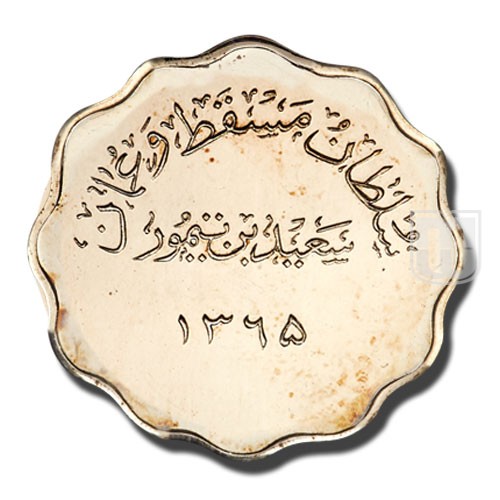 سلطان مسقط وعمان
سعيد بن تيمور
١٣٦٥